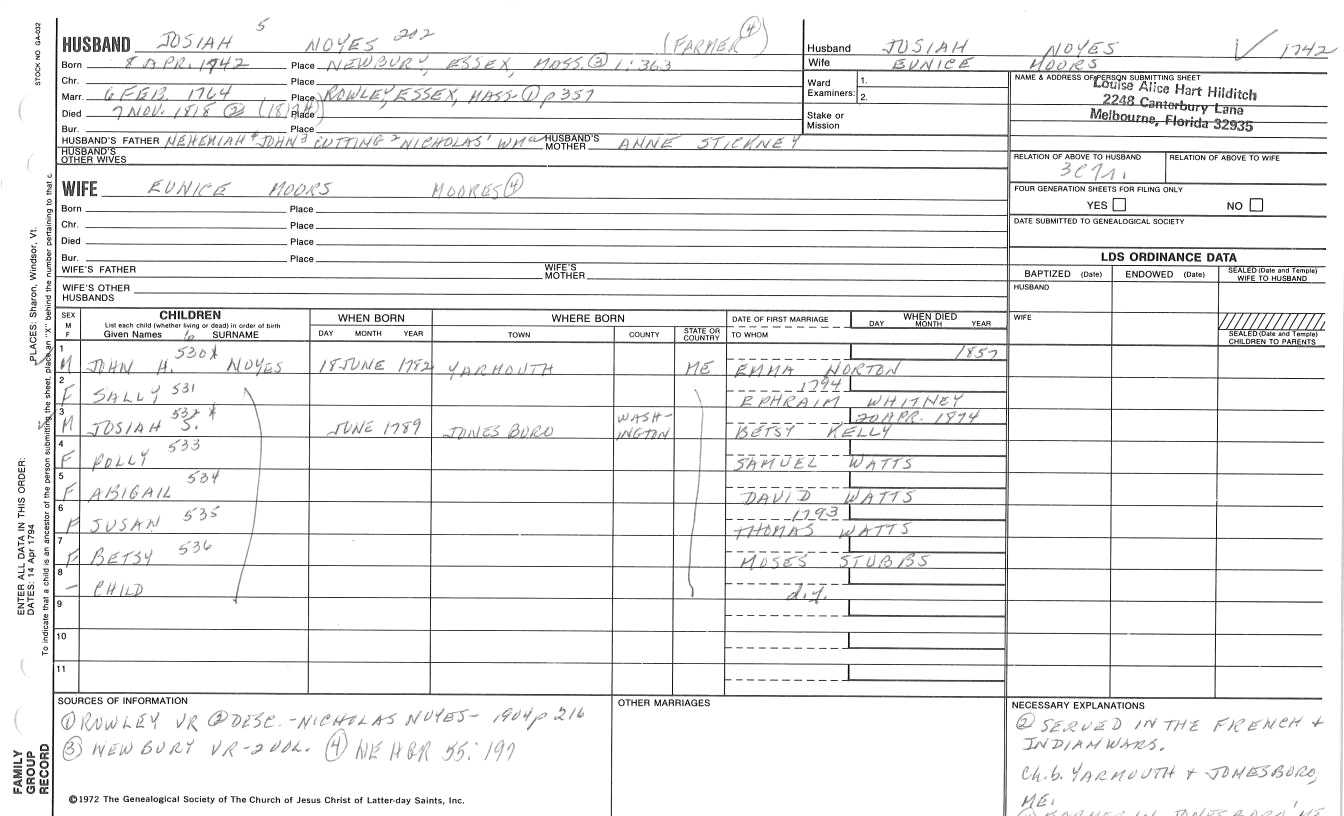 STOCK NO. GA-032
PLACES: Sharon, Windsor, Vt.
ENTER ALL DATA IN THIS ORDER:
DATES: 14 Apr 1794
To indicate that a child is an ancestor of the person submitting the sheet, place an "X" behind the number pertaining to that c
FAMILY
GROUP
RECORD
HUSBAND JOSIAH 5 NOYES 202 (FARMER ④)
Born 8 APR. 1742 Place NEWBURY, ESSEX, MASS. ③ 1:363
Chr. Place
Marr. 6 FEB. 1764 Place ROWLEY, ESSEX, MASS. ① p 357
Died 7 NOV. 1818 ② Place
Bur. Place
HUSBAND'S FATHER NEHEMIAH 4 JOHN 3 CUTTING 2 NICHOLAS 1 HUSBAND'S MOTHER ANNE STICKNEY
HUSBAND'S OTHER WIVES
WIFE EUNICE MOORS MOORES ④
Born Place
Chr. Place
Died Place
Bur. Place
WIFE'S FATHER WIFE'S MOTHER
WIFE'S OTHER HUSBANDS
Husband JOSIAH NOYES √ 1742
Wife EUNICE MOORS
Ward Examiners: 1. 2.
Stake or Mission
NAME & ADDRESS OF PERSON SUBMITTING SHEET
Louise Alice Hart Hilditch
2248 Canterbury Lane
Melbourne, Florida 32935
RELATION OF ABOVE TO HUSBAND RELATION OF ABOVE TO WIFE
FOUR GENERATION SHEETS FOR FILING ONLY
YES NO
DATE SUBMITTED TO GENEALOGICAL SOCIETY
LDS ORDINANCE DATA
BAPTIZED (Date) ENDOWED (Date) SEALED (Date and Temple) WIFE TO HUSBAND
HUSBAND
WIFE
SEALED (Date and Temple) CHILDREN TO PARENTS
SEX M F CHILDREN WHEN BORN WHERE BORN DATE OF FIRST MARRIAGE WHEN DIED
List each child (whether living or dead) in order of birth
Given Names 6 SURNAME DAY MONTH YEAR TOWN COUNTY STATE OR COUNTRY TO WHOM DAY MONTH YEAR
1 M JOHN H. 530 NOYES 18 JUNE 1782 YARMOUTH ME 1857
EMMA NORTON
2 F SALLY 531 1794
EPHRAIM WHITNEY
3 M JOSIAH S. JUNE 1789 JONESBORO WASHINGTON 20 APR. 1874
BETSY KELLY
4 F POLLY 533
SAMUEL WATTS
5 F ABIGAIL 534
DAVID WATTS
6 F SUSAN 535 1793
THOMAS WATTS
7 F BETSY 536
MOSES STUBBS
8 - CHILD d.y.
9
10
11
SOURCES OF INFORMATION
① ROWLEY VR ② DESC. - NICHOLAS NOYES - 1904 p 216
③ NEWBURY VR - 2 VOL. ④ NE H&R 55:197
©1972 The Genealogical Society of The Church of Jesus Christ of Latter-day Saints, Inc.
OTHER MARRIAGES
NECESSARY EXPLANATIONS
② SERVED IN THE FRENCH +
INDIAN WARS.
Ch. b. YARMOUTH + JONESBORO,
ME.